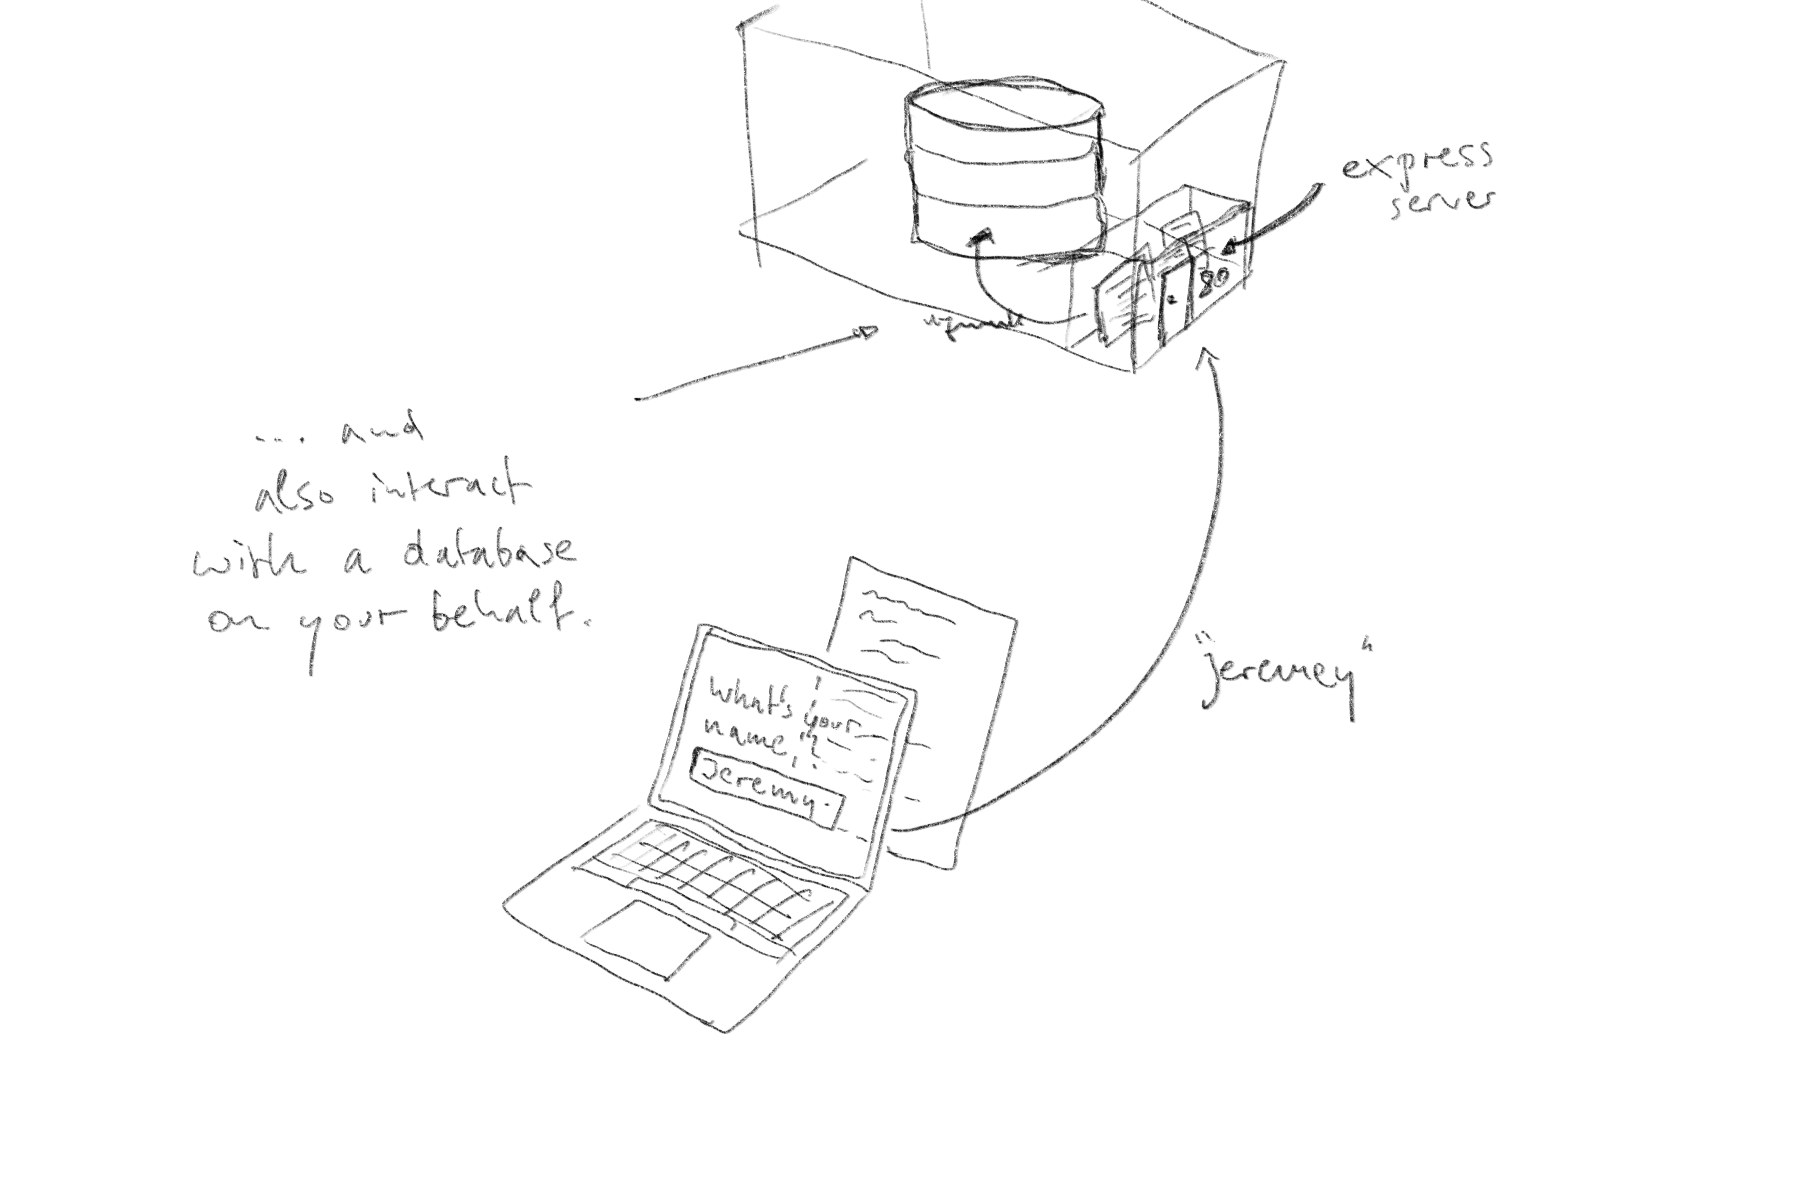 express
server
80
... and
also interact
with a database
on your behalf.
"jeremey"
what's your
name?
jeremy.